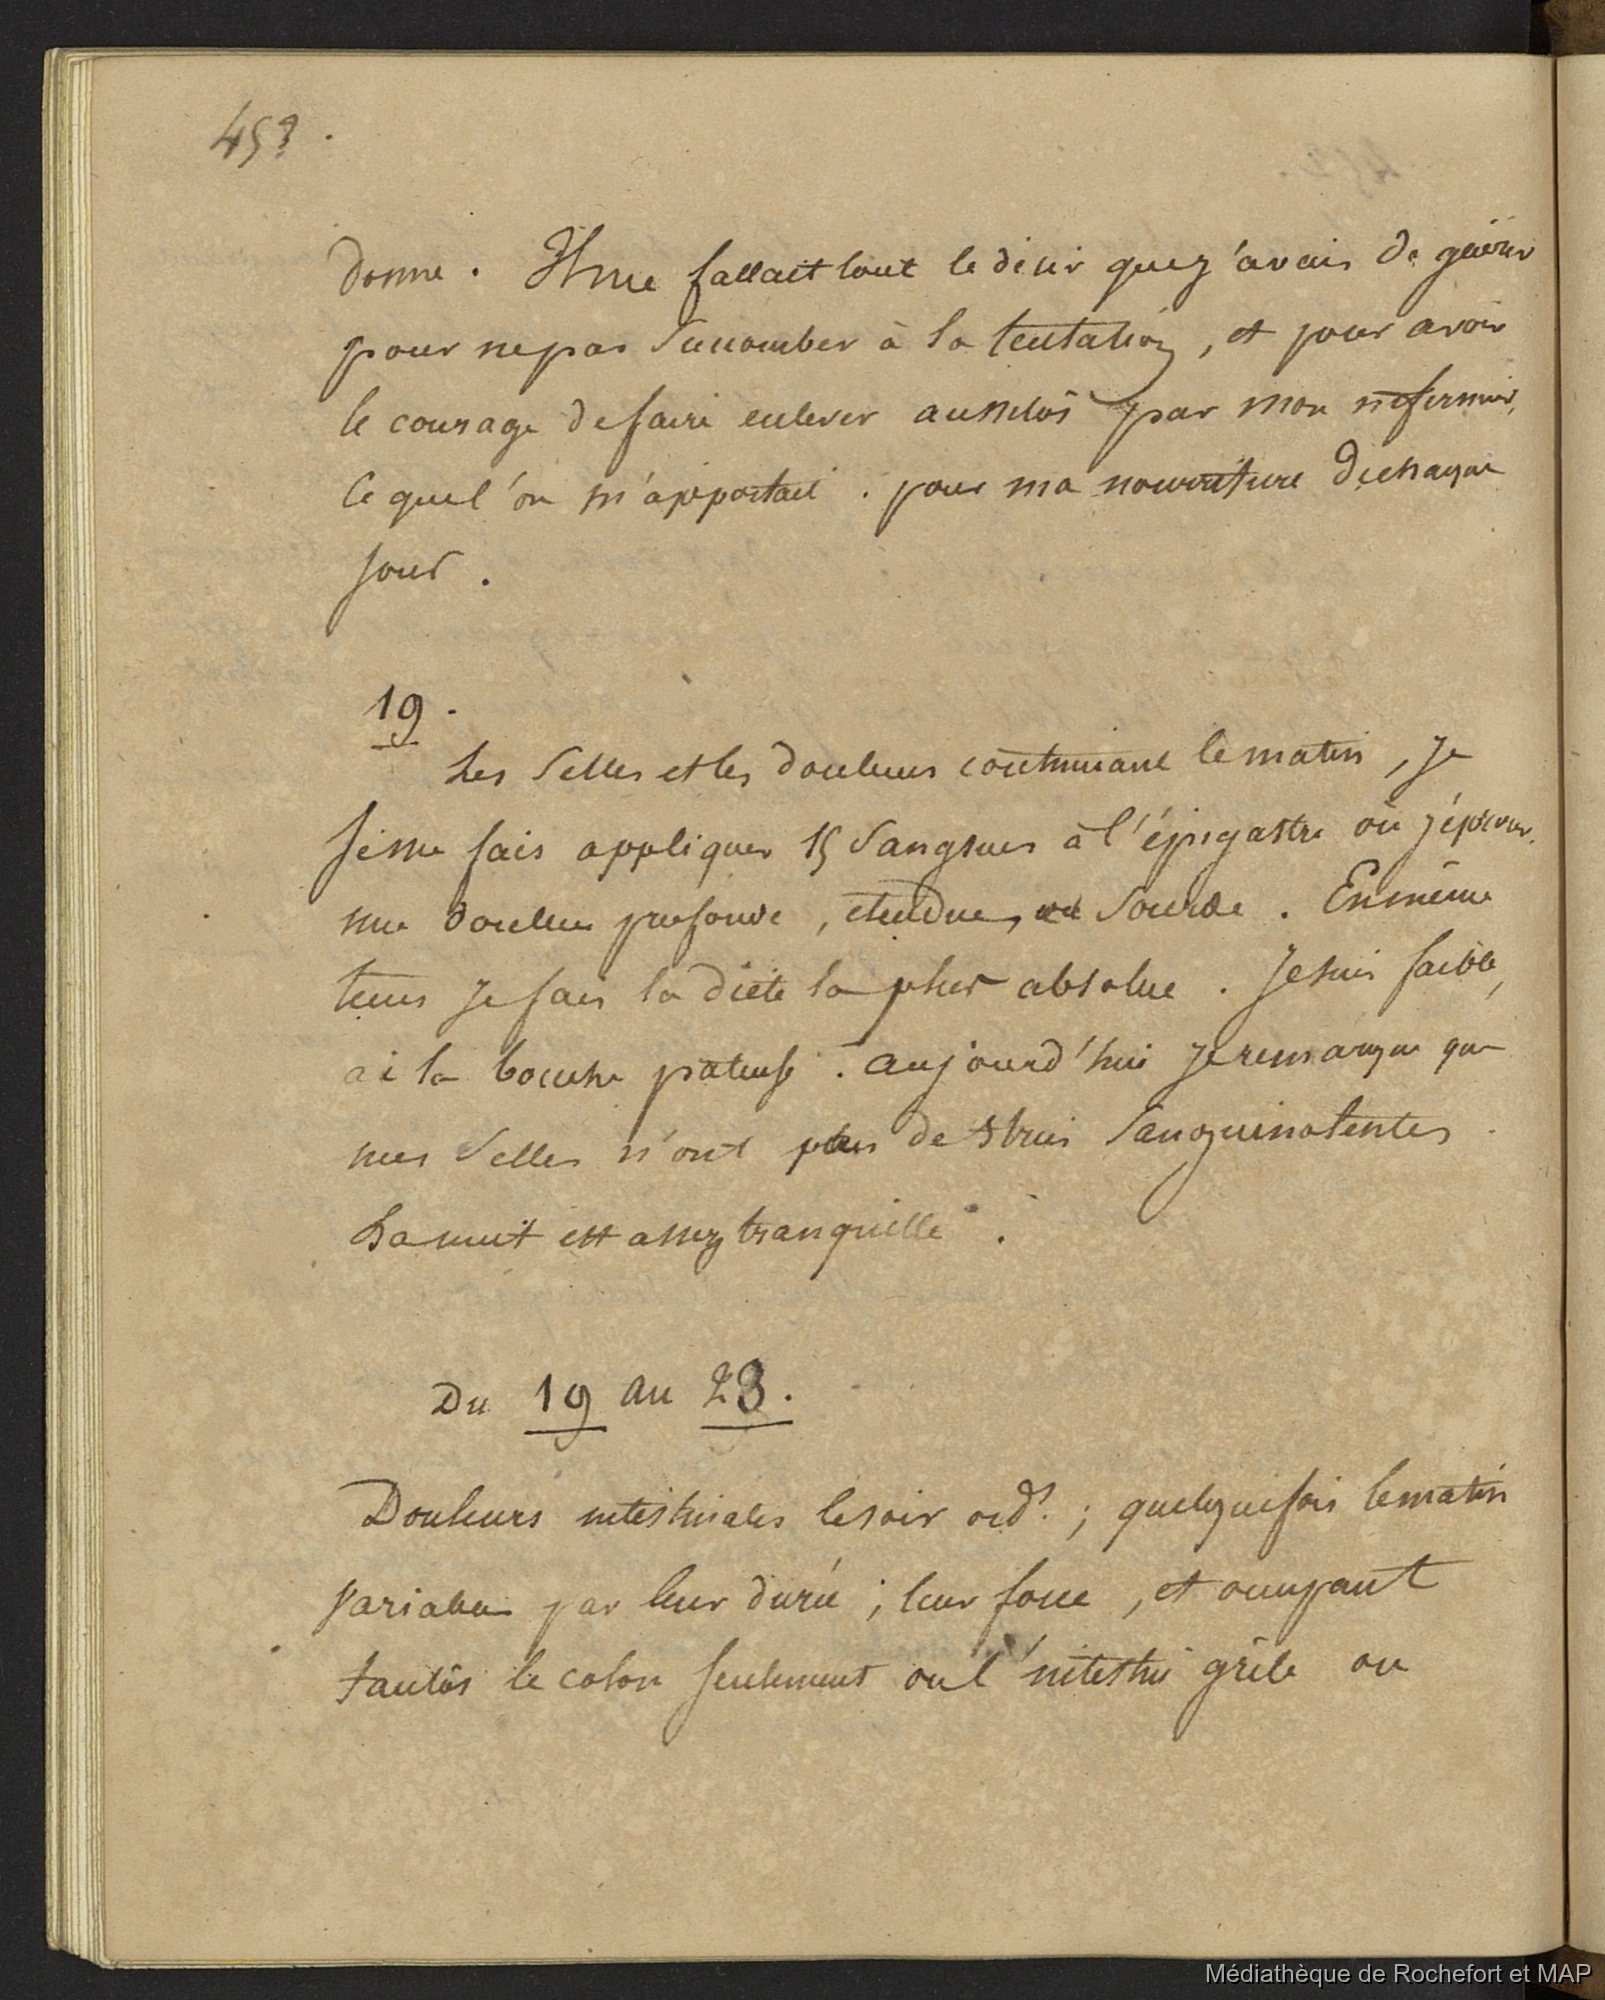 453.
donne. Il me fallait tout le désir que j'avais de guérir
pour ne pas succomber à la tentation, et pour avoir
le courage de faire enlever aussitôt par mon infirmier,
ce que l'on m'apportait. pour ma nourriture de chaque
jour.
19.
Les selles et les douleurs continuant le matin, je
je me fais appliquer 15 sangsues à l'épigastre où j'éprouve
une douleur profonde, étendue, et sourde. En même
tems je fais la diète la plus absolue. Je suis faible,
ai la bouche pateuse. aujourd'hui je remarque que
mes selles n'ont plus de stries sanguinolentes.
La nuit est assez tranquille.
Du 19 au 23.
Douleurs intestinales le soir ord.t; quelquefois le matin
variables par leur durée; leur force, et occupant
tantôt le colon seulement ou l'intestin grêle ou
Médiathèque de Rochefort et MAP